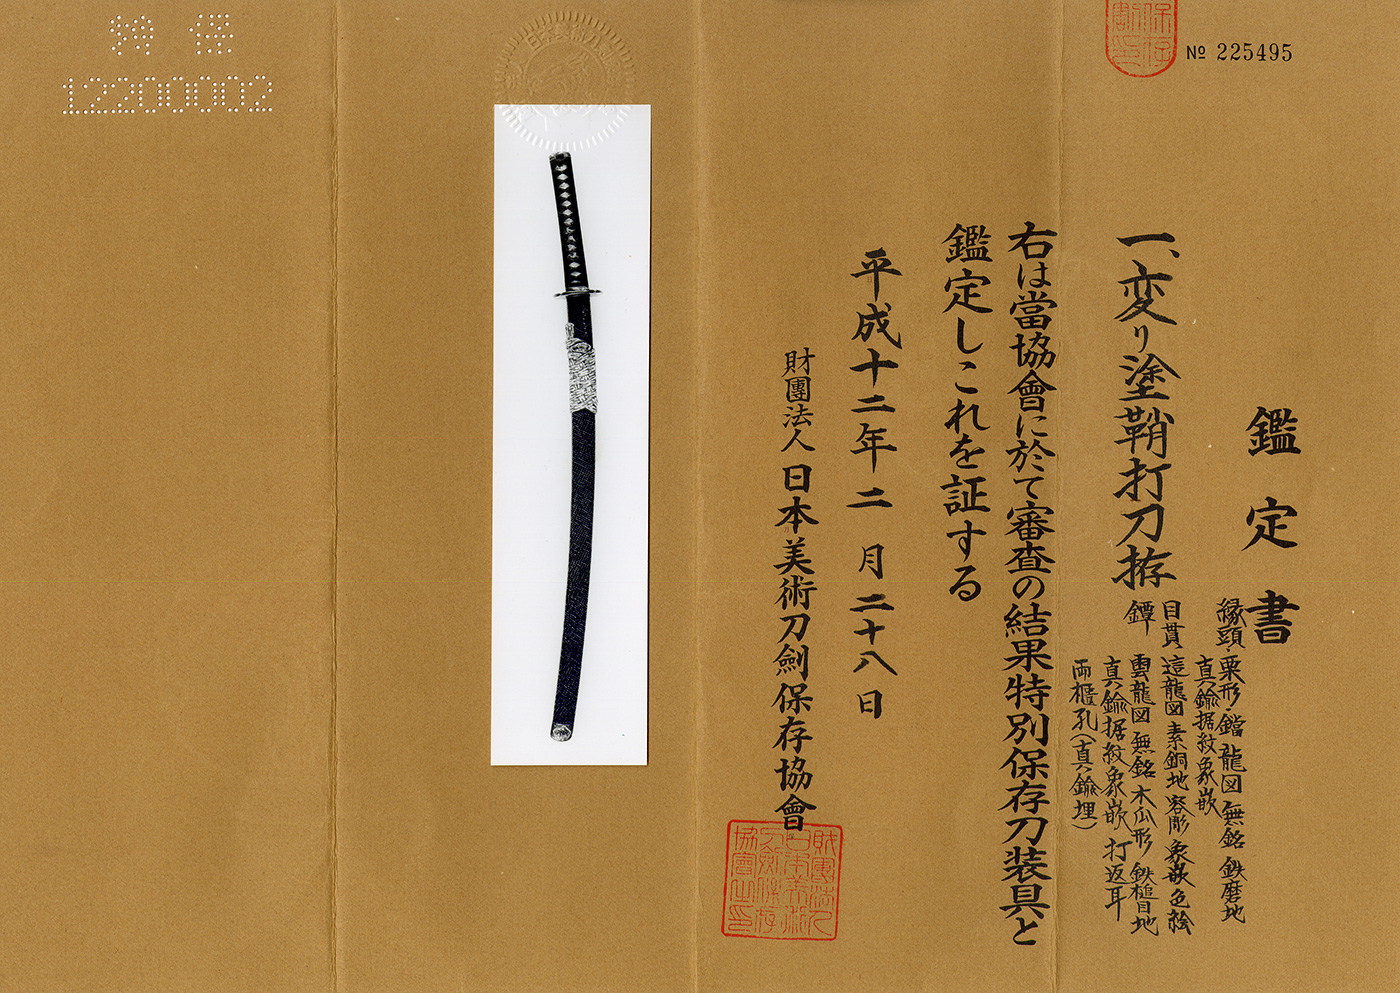 保存
割印
№ 225495
鑑定書
一、変り塗鞘打刀拵
縁頭・栗形・鐺 龍図 無銘 鉄磨地
真鍮据紋象嵌
目貫 這龍図 素銅地 容彫 象嵌色絵
鐔 雲龍図 無銘 木瓜形 鉄槌目地
真鍮据紋象嵌 打返耳
両櫃孔（真鍮埋）
右は當協會に於て審査の結果特別保存刀装具と
鑑定しこれを証する
平成十二年二月二十八日
財團法人 日本美術刀劍保存協會
財團法人
日本美術
刀劍保存
協會之印
特保
12200002